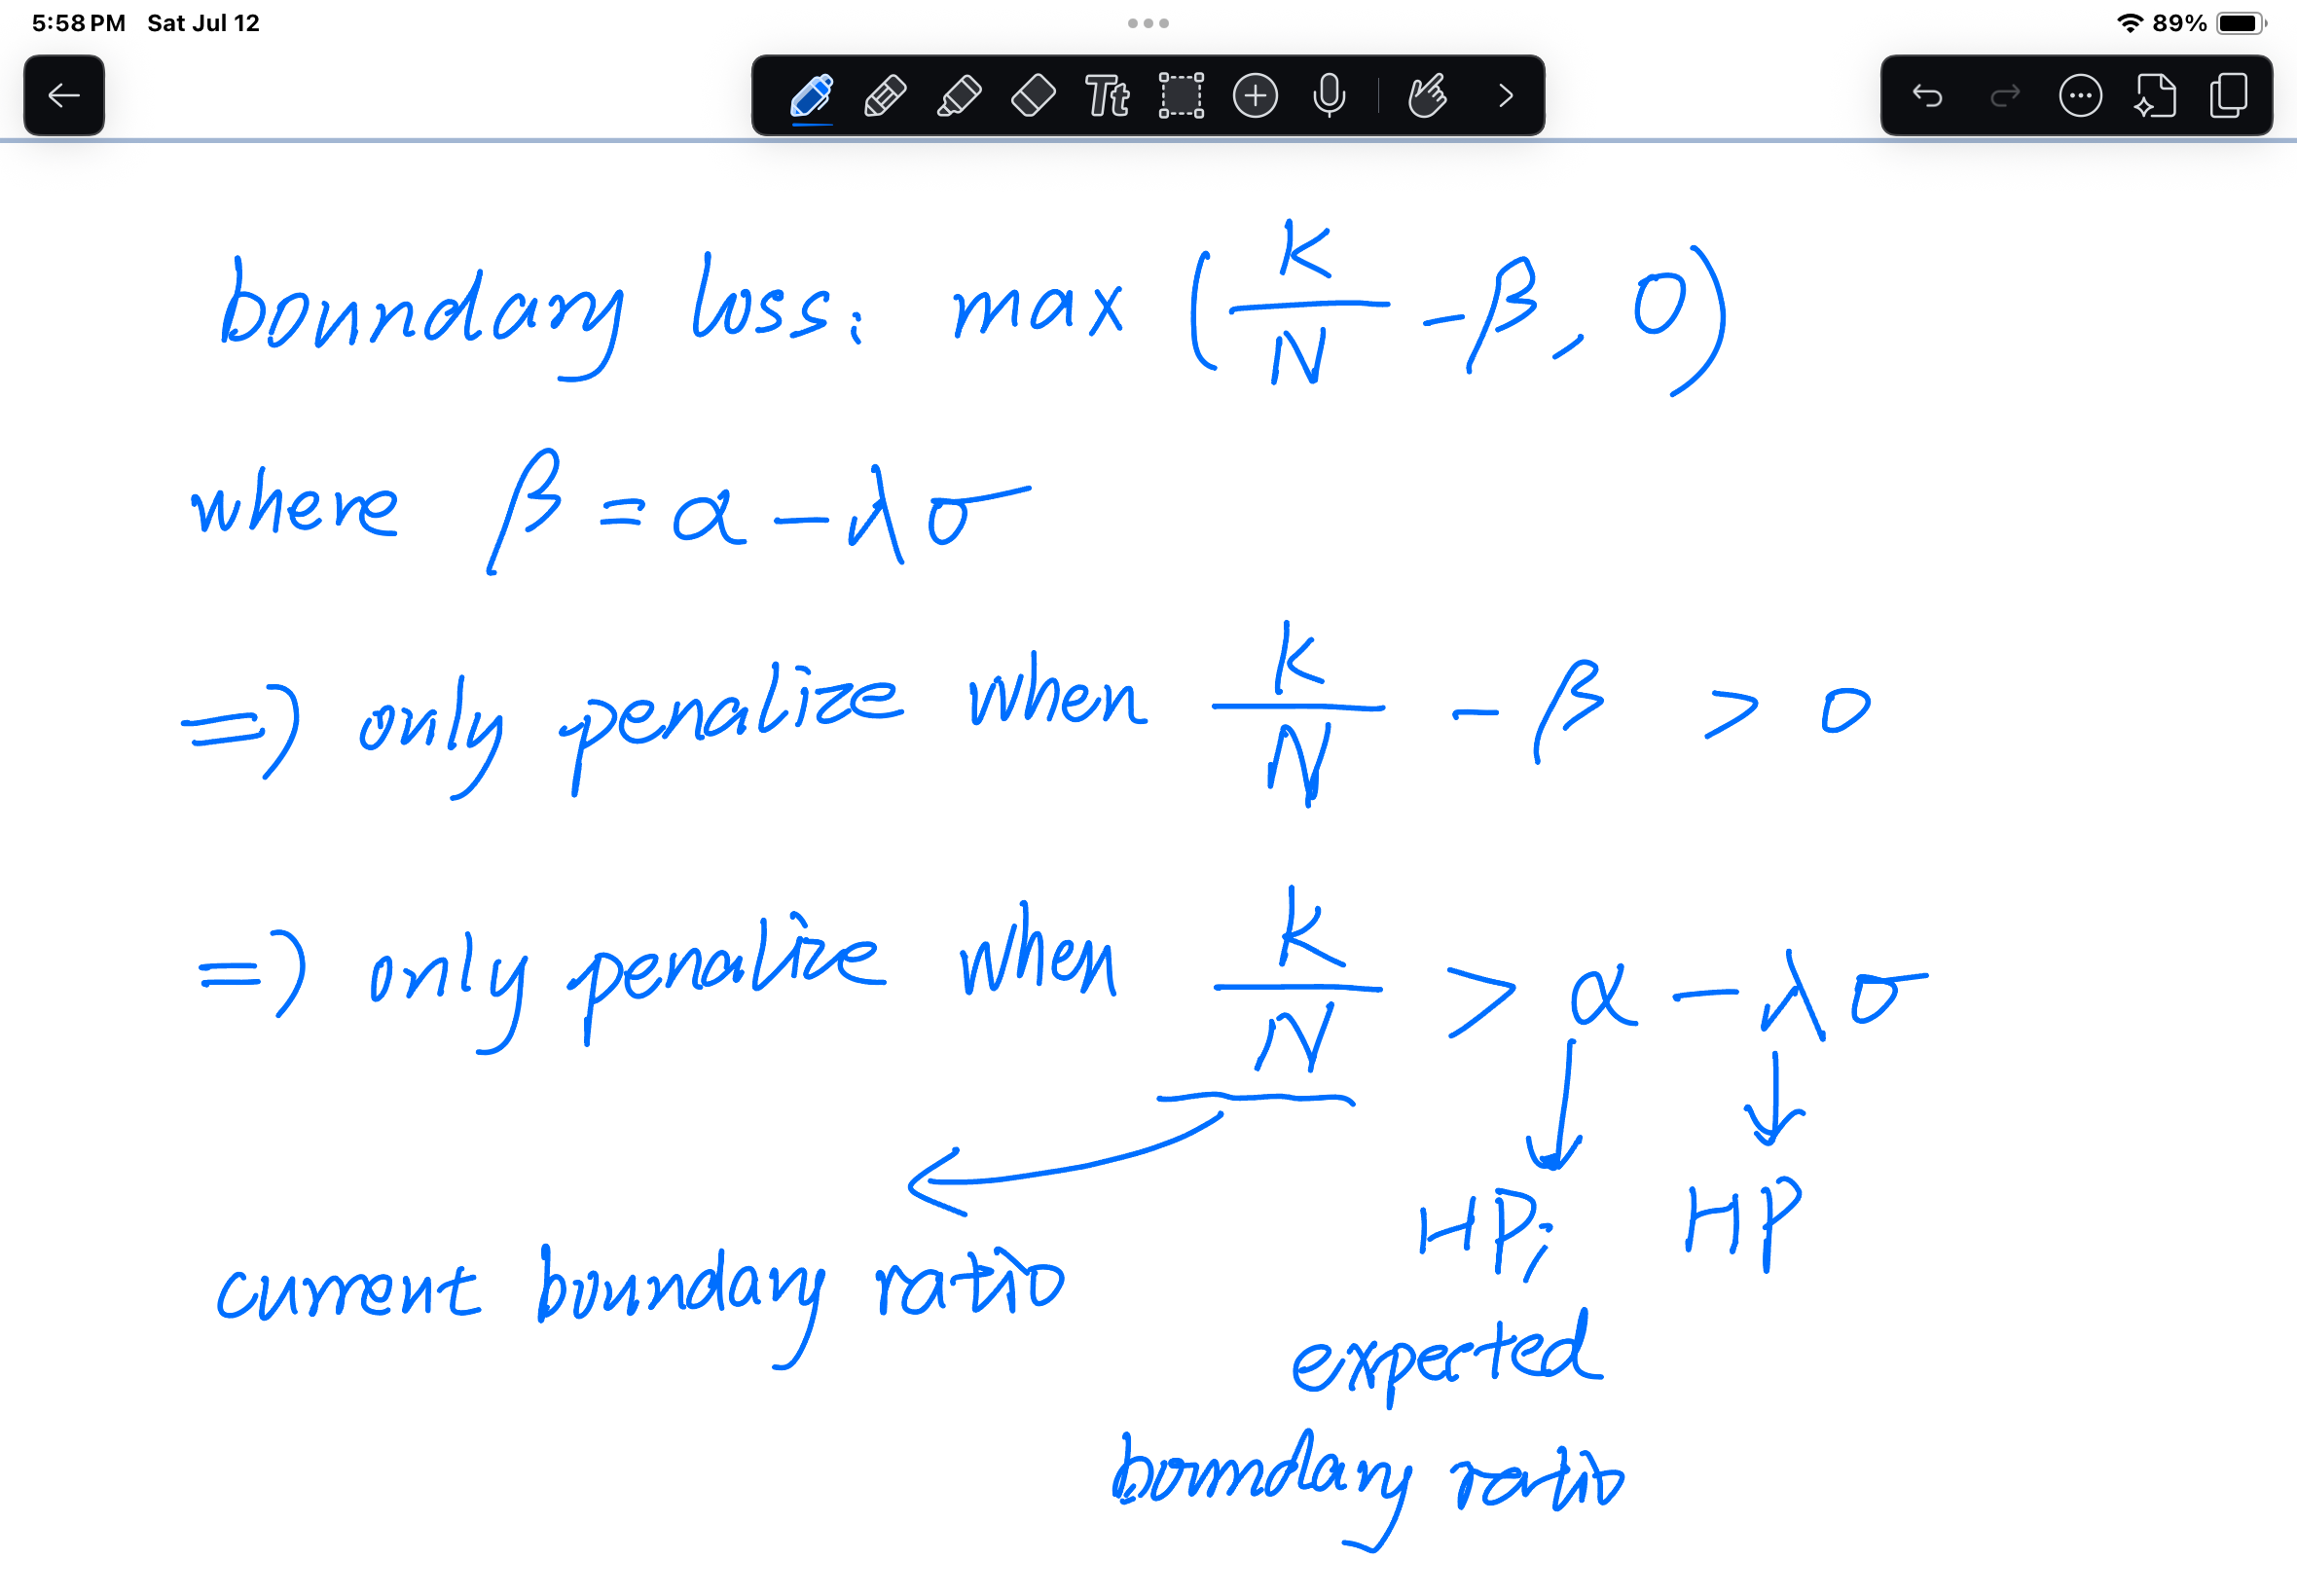 5:58 PM Sat Jul 12 89%
Tt
boundary loss: max (K/N - β, 0)
where β = α - λσ
=) only penalize when K/N - β > 0
=) only penalize when K/N > α - λσ
HP; HP
current boundary ratio
expected
boundary ratio